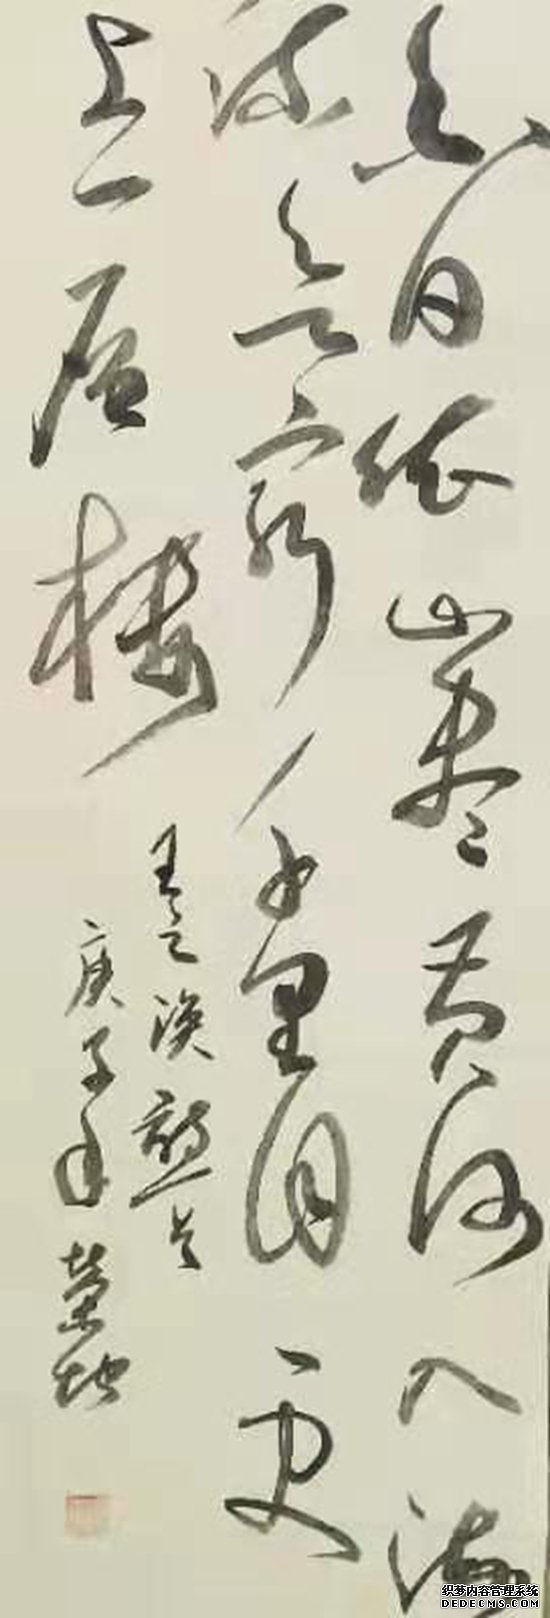 白日依山盡黄河入海
流欲窮千里目更
上一層樓
王之涣
庚子年
织梦内容管理系统
DEDECMS.COM